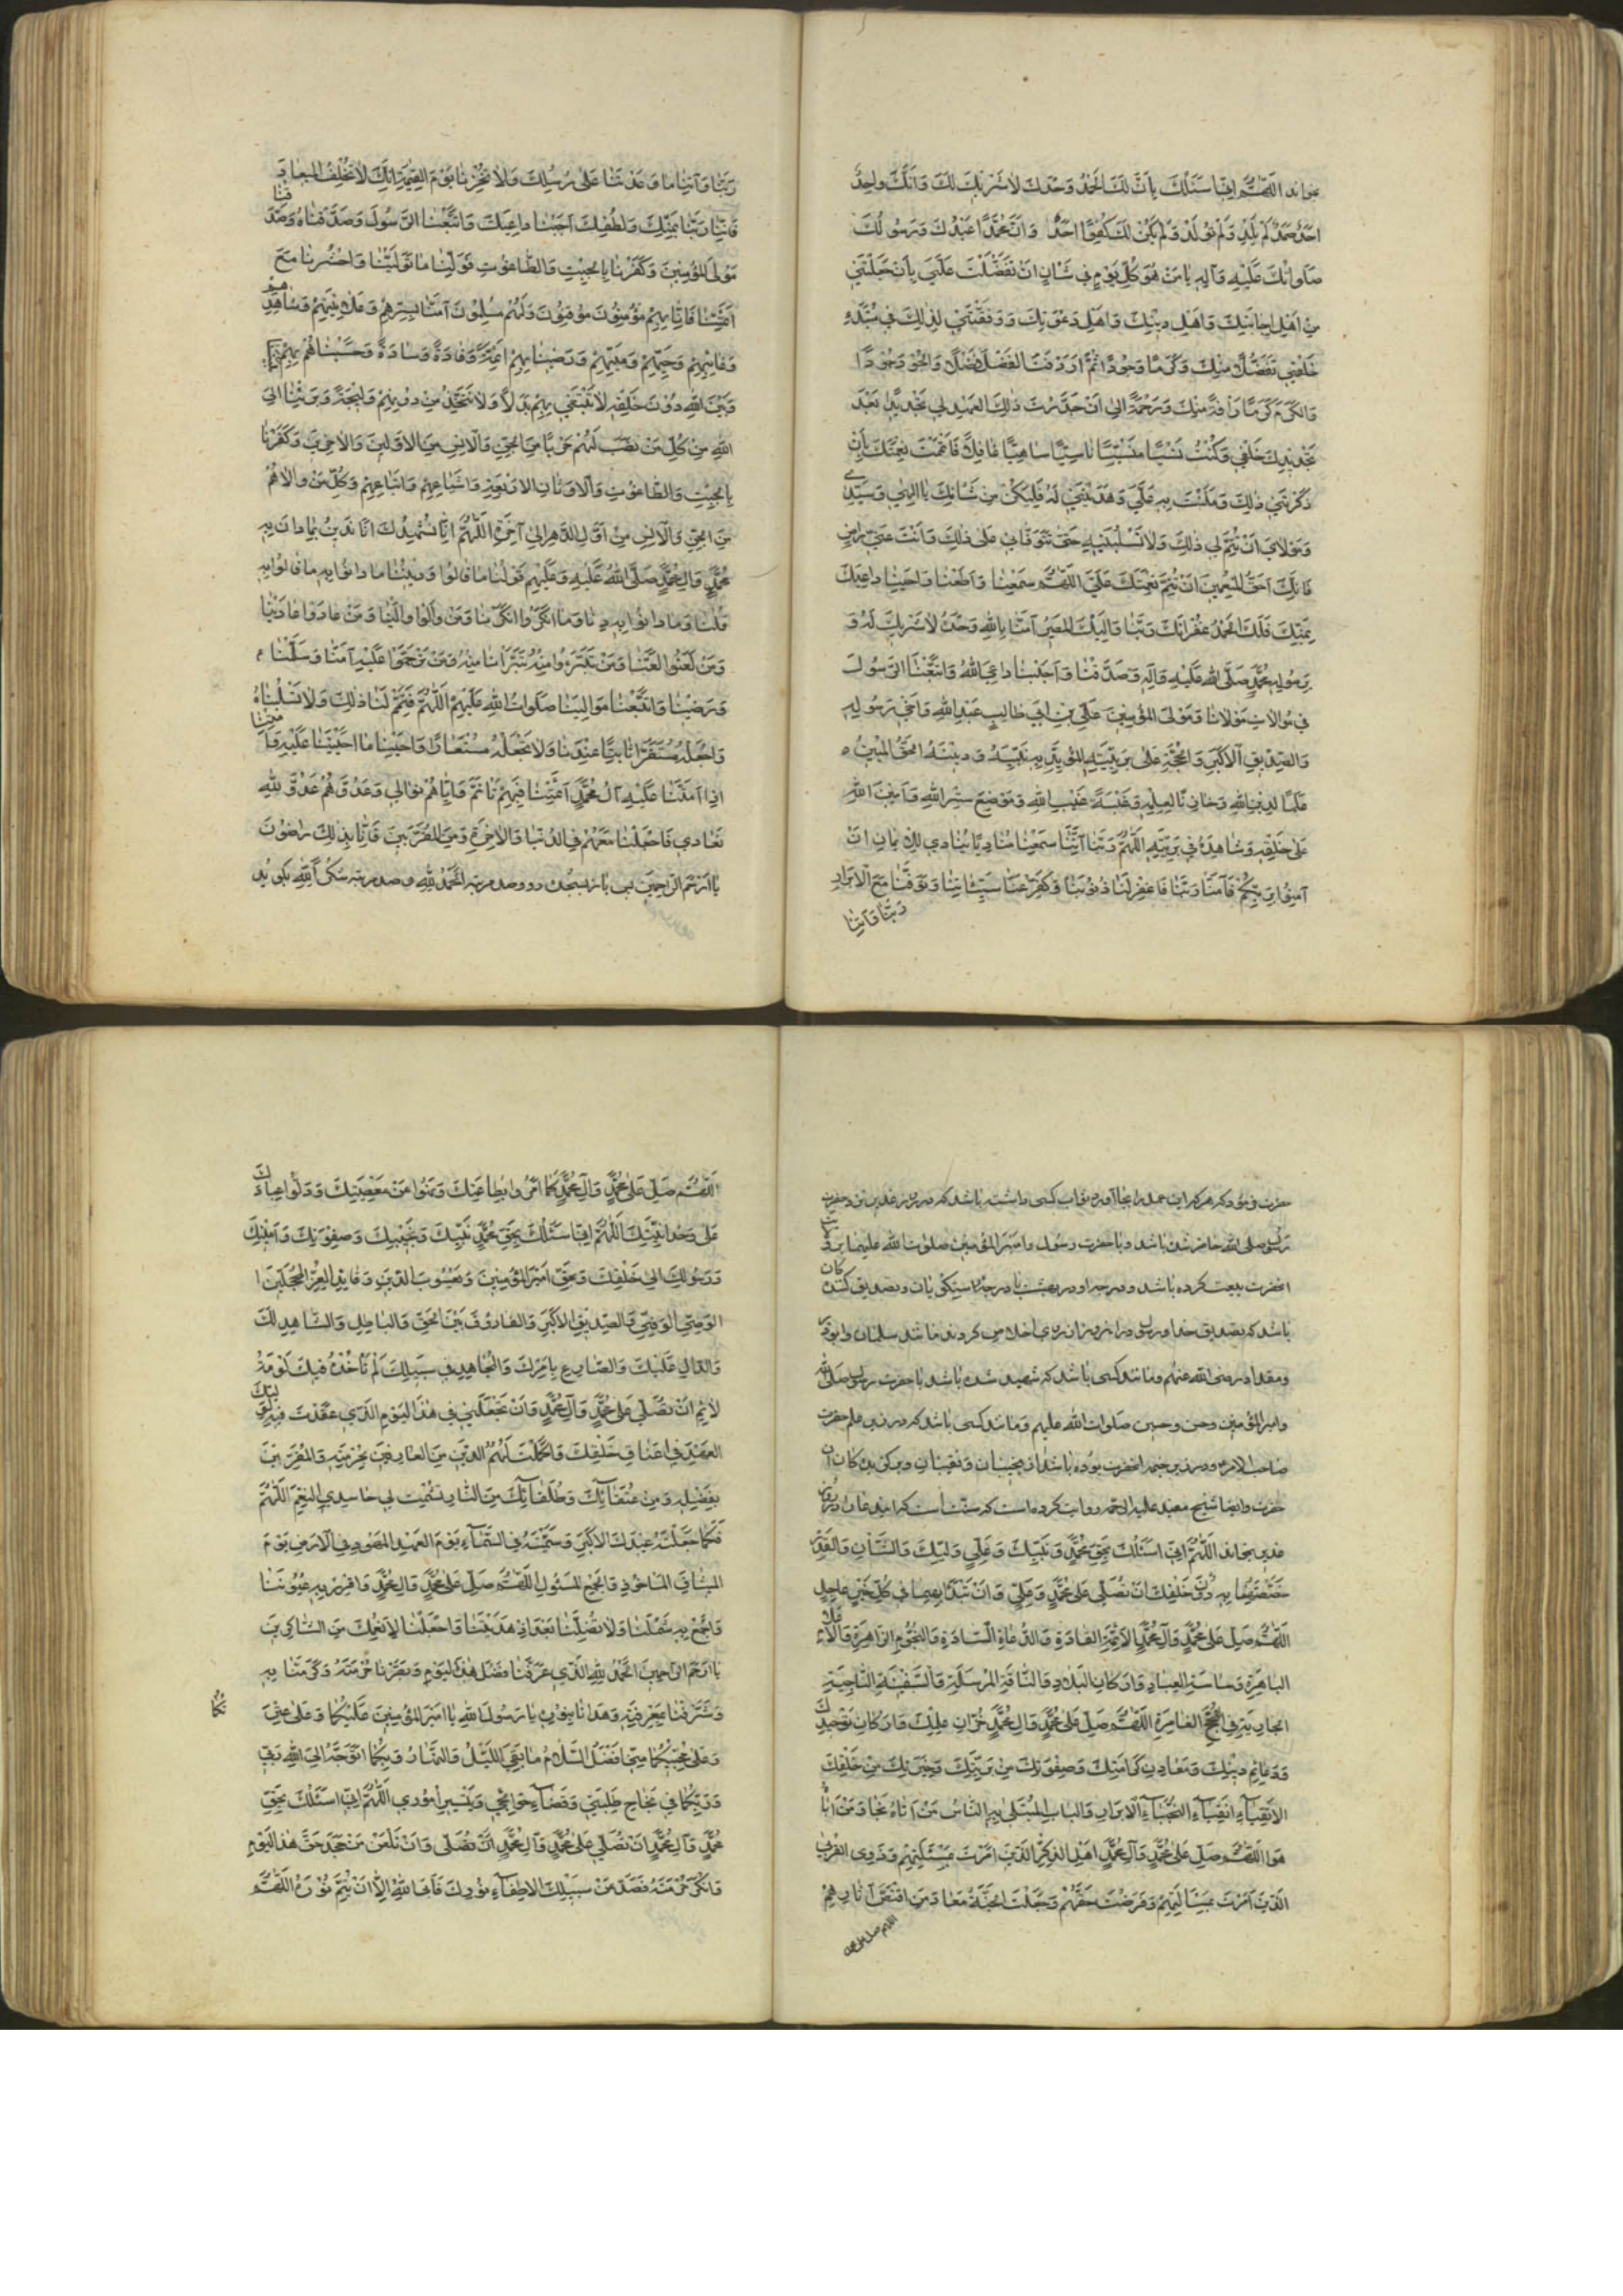 بخواند اللّهُمَّ اِنّی اَسئَلُكَ بِاَنَّ لَكَ الحَمدُ وَحدَكَ لا شَریكَ لَكَ وَاَنَّكَ واحِدٌ
اَحَدٌ صَمَدٌ لَم یَلِد وَلَم یُولَد وَلَم یَكُن لَكَ كُفُوًا اَحَدٌ وَاَنَّ مُحَمَّدًا عَبدُكَ وَرَسُولُكَ
صَلَواتُكَ عَلَیهِ وَآلِهِ یا مَن هُوَ كُلَّ یَومٍ فی شَانٍ اَن تَفَضَّلتَ عَلَیَّ بِاَن جَعَلتَنی
مِن اَهلِ اِجابَتِكَ وَاَهلِ دینِكَ وَاَهلِ دَعوَتِكَ وَوَفَّقتَنی لِذلِكَ فی مُبتَدَءِ
خَلقی تَفَضُّلًا مِنكَ وَكَرَمًا وَجُودًا ثُمَّ اَردَفتَ الفَضلَ فَضلًا وَالجُودَ جُودًا
وَالكَرَمَ كَرَمًا رَأفَةً مِنكَ وَرَحمَةً اِلی اَن جَدَّدتَ ذلِكَ العَهدَ لی تَجدیدًا بَعدَ
تَجدیدِكَ خَلقی وَكُنتُ نَسیًا مَنسِیًّا ناسِیًا ساهِیًا غافِلًا فَاَتمَمتَ نِعمَتَكَ بِاَن
ذَكَّرتَنی ذلِكَ وَمَنَنتَ بِهِ عَلَیَّ وَهَدَیتَنی لَهُ فَلیَكُن مِن شَأنِكَ یا اِلهی وَسَیِّدی
وَمَولایَ اَن تُتِمَّ لی ذلِكَ وَلا تَسلُبَنیهِ حَتّی تَتَوَفّانی عَلی ذلِكَ وَاَنتَ عَنّی راضٍ
فَاِنَّكَ اَحَقُّ المُنعِمینَ اَن تُتِمَّ نِعمَتَكَ عَلَیَّ اللّهُمَّ سَمِعنا وَاَطَعنا وَاَجَبنا داعِیَكَ
بِمَنِّكَ فَلَكَ الحَمدُ غُفرانَكَ رَبَّنا وَاِلَیكَ المَصیرُ آمَنّا بِاللّهِ وَحدَهُ لا شَریكَ لَهُ وَ
بِرَسُولِهِ مُحَمَّدٍ صَلَّی اللّهُ عَلَیهِ وَآلِهِ وَصَدَّقنا وَاَجَبنا داعِیَ اللّهِ وَاتَّبَعنَا الرَّسُولَ
فی مُوالاتِ مَولانا وَمَولَی المُؤمِنینَ عَلِیِّ بنِ اَبی طالِبٍ عَبدِ اللّهِ وَاَخی رَسُولِهِ
وَالصِّدّیقِ الاَكبَرِ وَالحُجَّةِ عَلی بَرِیَّتِهِ المُؤَیِّدِ بِهِ نَبِیَّهُ وَدینَهُ الحَقَّ المُبینَ
عَلَمًا لِدینِ اللّهِ وَخازِنًا لِعِلمِهِ وَعَیبَةَ غَیبِ اللّهِ وَمَوضِعَ سِرِّ اللّهِ وَاَمینَ اللّهِ
عَلی خَلقِهِ وَشاهِدَهُ فی بَرِیَّتِهِ اللّهُمَّ رَبَّنا اِنَّنا سَمِعنا مُنادِیًا یُنادی لِلایمانِ اَن
آمِنُوا بِرَبِّكُم فَآمَنّا رَبَّنا فَاغفِر لَنا ذُنُوبَنا وَكَفِّر عَنّا سَیِّئاتِنا وَتَوَفَّنا مَعَ الاَبرارِ
رَبَّنا وَآتِنا
رَبَّنا وَآتِنا ما وَعَدتَنا عَلی رُسُلِكَ وَلا تُخزِنا یَومَ القِیمَةِ اِنَّكَ لا تُخلِفُ المیعادَ
فَاِنّا رَبَّنا بِمَنِّكَ وَلُطفِكَ اَجَبنا داعِیَكَ وَاتَّبَعنَا الرَّسُولَ وَصَدَّقناهُ وَصَدَّقنا
مَولَی المُؤمِنینَ وَكَفَرنا بِالجِبتِ وَالطّاغُوتِ فَوَلِّنا ما تَوَلَّینا وَاحشُرنا مَعَ
اَئِمَّتِنا فَاِنّا بِهِم مُؤمِنُونَ مُوقِنُونَ وَلَهُم مُسلِمُونَ آمَنّا بِسِرِّهِم وَعَلانِیَتِهِم وَشاهِدِهِم
وَغائِبِهِم وَحَیِّهِم وَمَیِّتِهِم وَرَضینا بِهِم اَئِمَّةً وَقادَةً وَسادَةً وَحَسبُنا بِهِم بَینَنا
وَبَینَ اللّهِ دُونَ خَلقِهِ لا نَبتَغی بِهِم بَدَلًا وَلا نَتَّخِذُ مِن دُونِهِم وَلیجَةً وَبَرِئنا اِلَی
اللّهِ مِن كُلِّ مَن نَصَبَ لَهُم حَربًا مِنَ الجِنِّ وَالاِنسِ مِنَ الاَوَّلینَ وَالآخِرینَ وَكَفَرنا
بِالجِبتِ وَالطّاغُوتِ وَالاَوثانِ الاَربَعَةِ وَاَشیاعِهِم وَاَتباعِهِم وَكُلِّ مَن والاهُم
مِنَ الجِنِّ وَالاِنسِ مِن اَوَّلِ الدَّهرِ اِلی آخِرِهِ اَللّهُمَّ اِنّا نُشهِدُكَ اَنّا نَدینُ بِما دانَ بِهِ
مُحَمَّدٌ وَآلُ مُحَمَّدٍ صَلَّی اللّهُ عَلَیهِ وَعَلَیهِم قَولُنا ما قالُوا وَدینُنا ما دانُوا بِهِ ما قالُوا بِهِ
قُلنا وَما دانُوا بِهِ دِنّا وَما اَنكَرُوا اَنكَرنا وَمَن والَوا والَینا وَمَن عادَوا عادَینا
وَمَن لَعَنُوا لَعَنّا وَمَن تَبَرَّءُوا مِنهُ تَبَرَّأنا مِنهُ وَمَن تَرَحَّمُوا عَلَیهِ آمَنّا وَسَلَّمنا
وَرَضینا وَاتَّبَعنا مَوالِینا صَلَواتُ اللّهِ عَلَیهِم اَللّهُمَّ فَتَمِّم لَنا ذلِكَ وَلا تَسلُبناهُ
وَاجعَلهُ مُستَقَرًّا ثابِتًا عِندَنا وَلا تَجعَلهُ مُستَعارًا وَاَحیِنا ما اَحیَیتَنا عَلَیهِ وَاَمِتنا
اِذا اَمَتَّنا عَلَیهِ آلُ مُحَمَّدٍ اَئِمَّتُنا فَبِهِم نَأتَمُّ وَاِیّاهُم نُوالی وَعَدُوَّهُم عَدُوَّ اللّهِ
نُعادی فَاجعَلنا مَعَهُم فِی الدُّنیا وَالآخِرَةِ وَمِنَ المُقَرَّبینَ فَاِنّا بِذلِكَ راضُونَ
یا اَرحَمَ الرّاحِمینَ پس باز بسجده رود وصد مرتبه اَلحَمدُ لِلّهِ وصد مرتبه شُكرًا لِلّهِ بگوید
حضرت فرمود كه هر كه این عمل را بجا آورد ثواب كسی داشته باشد كه در روز غدیر نزد حضرت
رسول صلی الله حاضر شده باشد و با حضرت رسول وامیر المؤمنین صلوات الله علیهما
انحضرت بیعت كرده باشد ودرجه او در بهشت با درجه راستگویان وتصدیق كنندكان
باشد كه تصدیق خدا ورسول در انروز از روی اخلاص كردند مانند سلمان وابوذر
ومقداد رضی الله عنهم ومانند كسی باشد كه شهید شده باشد با حضرت رسول صلی الله
وامیر المؤمنین وحسن وحسین صلوات الله علیهم ومانند كسی باشد كه در زیر علم حضرت
صاحب الامر ودر زیر خیمه انحضرت بوده باشد از نجیبان ونقیبان وبرگزیدكان ان
حضرت وایضا شیخ مفید علیه الرحمه روایت كرده است كه سنت است كه این دعا در روز
غدیر بخواند اَللّهُمَّ اِنّی اَسئَلُكَ بِحَقِّ مُحَمَّدٍ نَبِیِّكَ وَعَلِیٍّ وَلِیِّكَ وَالشَّانِ وَالقَدرِ
خَصَصتَهُما بِهِ دُونَ خَلقِكَ اَن تُصَلِّیَ عَلی مُحَمَّدٍ وَعَلِیٍّ وَاَن تَبدَأَ بِهِما فی كُلِّ خَیرٍ عاجِلٍ
اَللّهُمَّ صَلِّ عَلی مُحَمَّدٍ وَآلِ مُحَمَّدٍ الاَئِمَّةِ القادَةِ وَالدُّعاةِ السّادَةِ وَالنُّجُومِ الزّاهِرَةِ وَالاَعلامِ
الباهِرَةِ وَساسَةِ العِبادِ وَاَركانِ البِلادِ وَالنّاقَةِ المُرسَلَةِ وَالسَّفینَةِ النّاجِیَةِ
الجارِیَةِ فِی اللُّجَجِ الغامِرَةِ اَللّهُمَّ صَلِّ عَلی مُحَمَّدٍ وَآلِ مُحَمَّدٍ خُزّانِ عِلمِكَ وَاَركانِ تَوحیدِكَ
وَدَعائِمِ دینِكَ وَمَعادِنِ كَرامَتِكَ وَصِفوَتِكَ مِن بَرِیَّتِكَ وَخِیَرَتِكَ مِن خَلقِكَ
الاَتقِیاءِ النُّجَباءِ الاَبرارِ وَالبابِ المُبتَلی بِهِ النّاسُ مَن اَتاهُ نَجا وَمَن اَباهُ
هَوی اَللّهُمَّ صَلِّ عَلی مُحَمَّدٍ وَآلِ مُحَمَّدٍ اَهلِ الذِّكرِ الَّذینَ اَمَرتَ بِمَسئَلَتِهِم وَذَوِی القُربی
الَّذینَ اَمَرتَ بِمَوَدَّتِهِم وَفَرَضتَ حَقَّهُم وَجَعَلتَ الجَنَّةَ مَعادَ مَنِ اقتَصَّ آثارَهُم
اللهم صل علی محمد
اَللّهُمَّ صَلِّ عَلی مُحَمَّدٍ وَآلِ مُحَمَّدٍ كَما اَمَرُوا بِطاعَتِكَ وَنَهَوا عَن مَعصِیَتِكَ وَدَلُّوا عِبادَكَ
عَلی وَحدانِیَّتِكَ اَللّهُمَّ اِنّی اَسئَلُكَ بِحَقِّ مُحَمَّدٍ نَبِیِّكَ وَنَجیبِكَ وَصِفوَتِكَ وَاَمینِكَ
وَرَسُولِكَ اِلی خَلقِكَ وَبِحَقِّ اَمیرِ المُؤمِنینَ وَیَعسُوبِ الدّینِ وَقائِدِ الغُرِّ المُحَجَّلینَ
الوَصِیِّ الوَفِیِّ وَالصِّدّیقِ الاَكبَرِ وَالفارُوقِ بَینَ الحَقِّ وَالباطِلِ وَالشّاهِدِ لَكَ
وَالدّالِّ عَلَیكَ وَالصّادِعِ بِاَمرِكَ وَالمُجاهِدِ فی سَبیلِكَ لَم تَأخُذهُ فیكَ لَومَةُ
لائِمٍ اَن تُصَلِّیَ عَلی مُحَمَّدٍ وَآلِ مُحَمَّدٍ وَاَن تَجعَلَنی فی هذَا الیَومِ الَّذی عَقَدتَ فیهِ لِوَلِیِّكَ
العَهدَ فی اَعناقِ خَلقِكَ وَاَكمَلتَ لَهُمُ الدّینَ مِنَ العارِفینَ بِحُرمَتِهِ وَالمُقِرّینَ
بِفَضلِهِ وَمِن عُتَقائِكَ وَطُلَقائِكَ مِنَ النّارِ وَلا تُشمِت بی حاسِدِی النِّعَمِ اَللّهُمَّ
فَكَما جَعَلتَهُ عیدَكَ الاَكبَرَ وَسَمَّیتَهُ فِی السَّماءِ یَومَ العَهدِ المَعهُودِ وَفِی الاَرضِ یَومَ
المیثاقِ المَأخُوذِ وَالجَمعِ المَسئُولِ اَللّهُمَّ صَلِّ عَلی مُحَمَّدٍ وَآلِ مُحَمَّدٍ وَاَقرِر بِهِ عُیُونَنا
وَاجمَع بِهِ شَملَنا وَلا تُضِلَّنا بَعدَ اِذ هَدَیتَنا وَاجعَلنا لِاَنعُمِكَ مِنَ الشّاكِرینَ
یا اَرحَمَ الرّاحِمینَ اَلحَمدُ لِلّهِ الَّذی عَرَّفَنا فَضلَ هذَا الیَومِ وَبَصَّرَنا حُرمَتَهُ وَكَرَّمَنا بِهِ
وَشَرَّفَنا بِمَعرِفَتِهِ وَهَدانا بِنُورِهِ یا رَسُولَ اللّهِ یا اَمیرَ المُؤمِنینَ عَلَیكُما وَعَلی عِترَتِكُما
وَعَلی مُحِبّیكُما مِنّی اَفضَلُ السَّلامِ ما بَقِیَ اللَّیلُ وَالنَّهارُ وَبِكُما اَتَوَجَّهُ اِلَی اللّهِ رَبّی
وَرَبِّكُما فی نَجاحِ طَلِبَتی وَقَضاءِ حَوائِجی وَتَیسیرِ اُمُوری اَللّهُمَّ اِنّی اَسئَلُكَ بِحَقِّ
مُحَمَّدٍ وَآلِ مُحَمَّدٍ اَن تُصَلِّیَ عَلی مُحَمَّدٍ وَآلِ مُحَمَّدٍ وَاَن تَلعَنَ مَن جَحَدَ حَقَّ هذَا الیَومِ
وَاَنكَرَ حُرمَتَهُ فَصَدَّ عَن سَبیلِكَ لِاِطفاءِ نُورِكَ فَاَبَی اللّهُ اِلّا اَن یُتِمَّ نُورَهُ اَللّهُمَّ